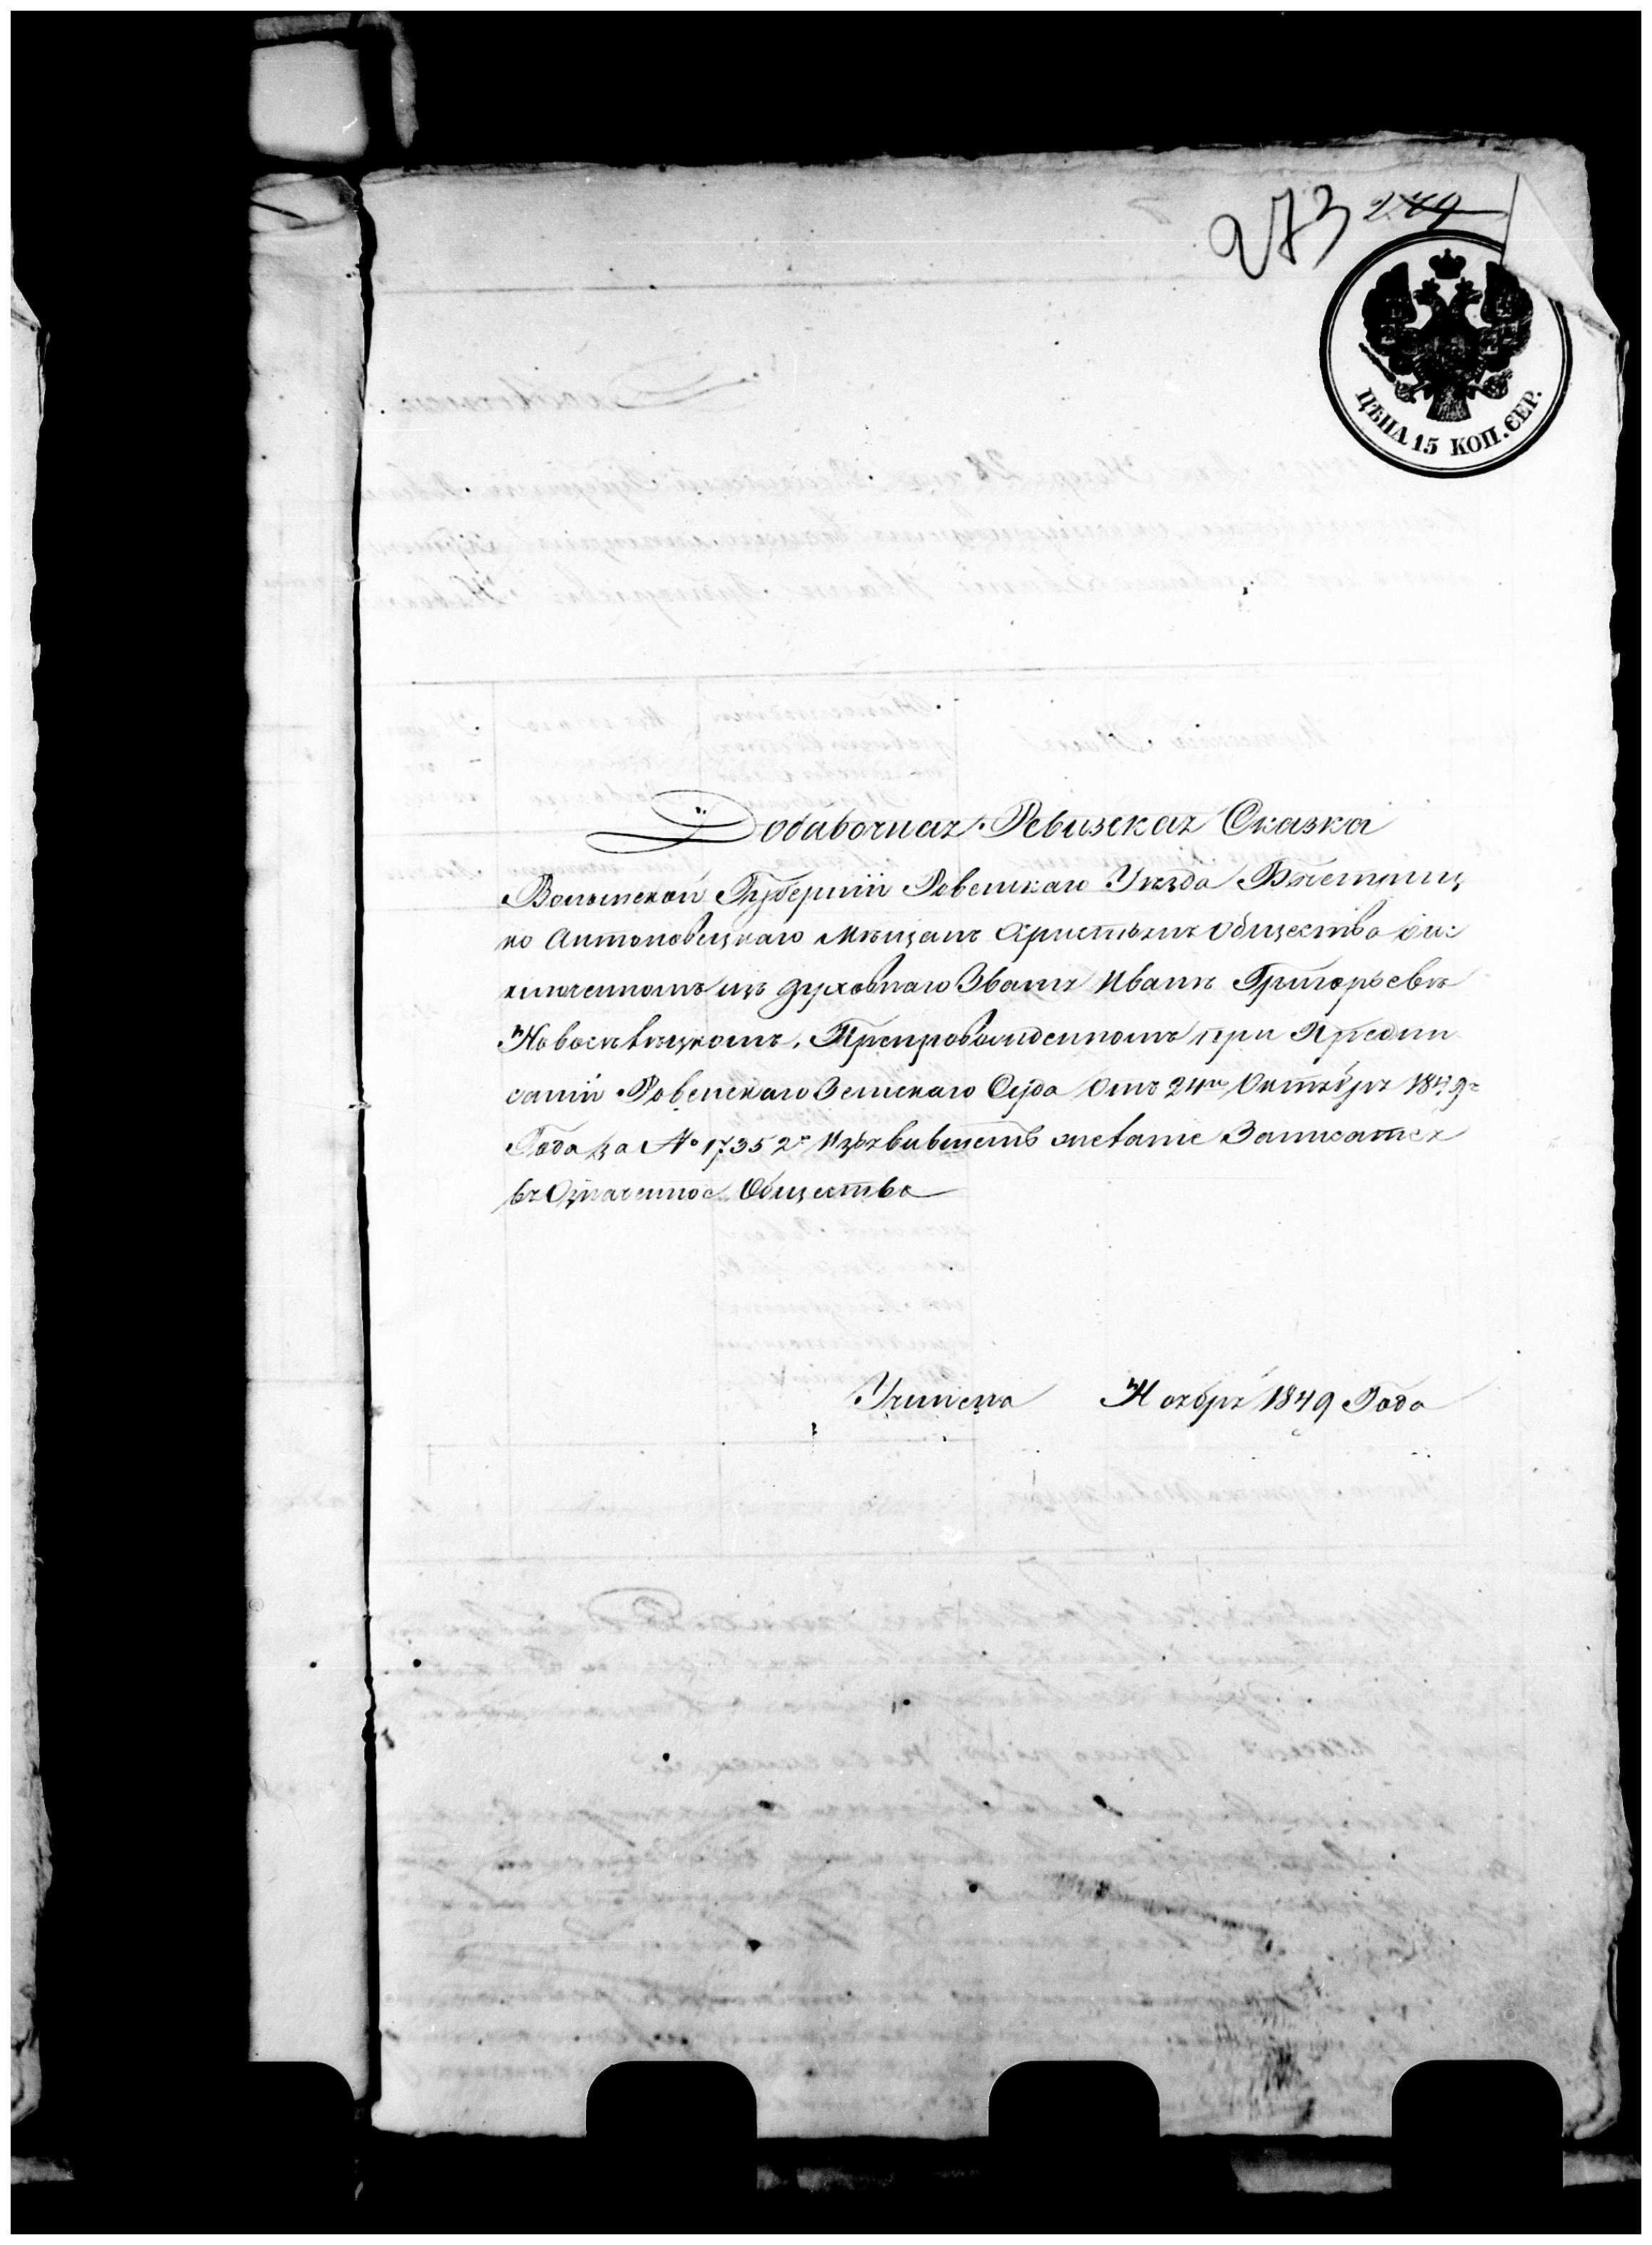 273 249
ЦѢНА 15 КОП. СЕР.
Добавочная Ревизская Сказка
Волынской Губерніи Ровенскаго Уѣзда Быстриц
ко Антоновецкаго Мѣщанъ Христьянъ Общества ои:
ключенномъ изъ духовнаго Званія Иванѣ Григорьевѣ
Новосѣлѣцкомъ, Препровожденномъ при Предпи
саніи Ровенскаго Земскаго Суда Отъ 24го Октября 1849го
Года за № 17352м Изъявившемъ желаніе Записатся
въ Означенное Общество
Учинена Ноября 1849 Года